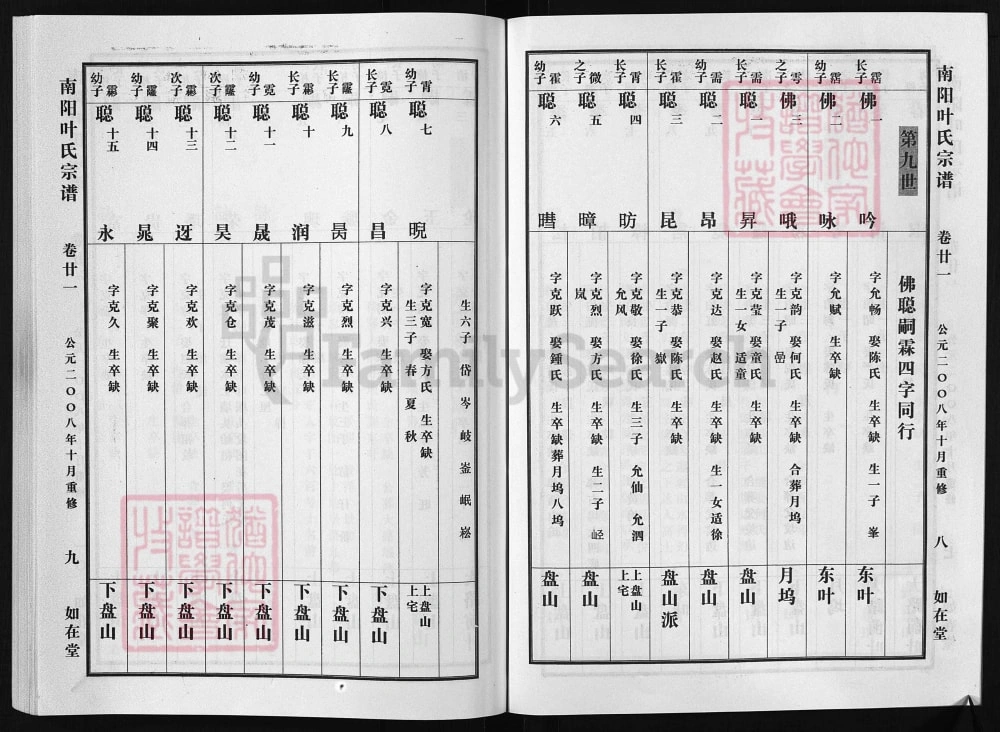 南阳叶氏宗谱
卷廿一
公元二〇〇八年十月重修
八
如在堂
第九世
佛聪嗣霖四字同行
长子霑 佛一 吟 字允畅 娶陈氏 生卒缺 生一子 峯 东叶
幼子霑 佛二 咏 字允赋 生卒缺 东叶
之子雩 佛三 哦 字克韵 娶何氏 生卒缺 合葬月坞
生一子 嵒 月坞
长子需 聪一 昇 字克莹 娶童氏 生卒缺
生一女 适童 盘山
幼子需 聪二 昂 字克达 娶赵氏 生卒缺 生一女适徐 盘山
长子霍 聪三 昆 字克恭 娶陈氏 生卒缺
生一子 嶽 盘山派
长子霄 聪四 昉 字克敬 娶徐氏 生三子 允仙 允泗
允风 上盘山
上宅
之子微 聪五 暲 字克烈 娶方氏 生卒缺 生二子 岖
岚 盘山
幼子霍 聪六 暳 字克跃 娶鍾氏 生卒缺葬月坞八坞 盘山
生六子 岱 岑 岐 崟 岷 崧
幼子霄 聪七 晛 字克宽 娶方氏 生卒缺
生三子 春 夏 秋 上盘山
上宅
长子霓 聪八 昌 字克兴 生卒缺 下盘山
长子靇 聪九 昺 字克烈 生卒缺 下盘山
长子霦 聪十 润 字克滋 生卒缺 下盘山
幼子霓 聪十一 晟 字克茂 生卒缺 下盘山
次子靇 聪十二 昊 字克仓 生卒缺 下盘山
次子霦 聪十三 迓 字克欢 生卒缺 下盘山
幼子靇 聪十四 晁 字克聚 生卒缺 下盘山
幼子霦 聪十五 永 字克久 生卒缺 下盘山
南阳叶氏宗谱
卷廿一
公元二〇〇八年十月重修
九
如在堂
FamilySearch